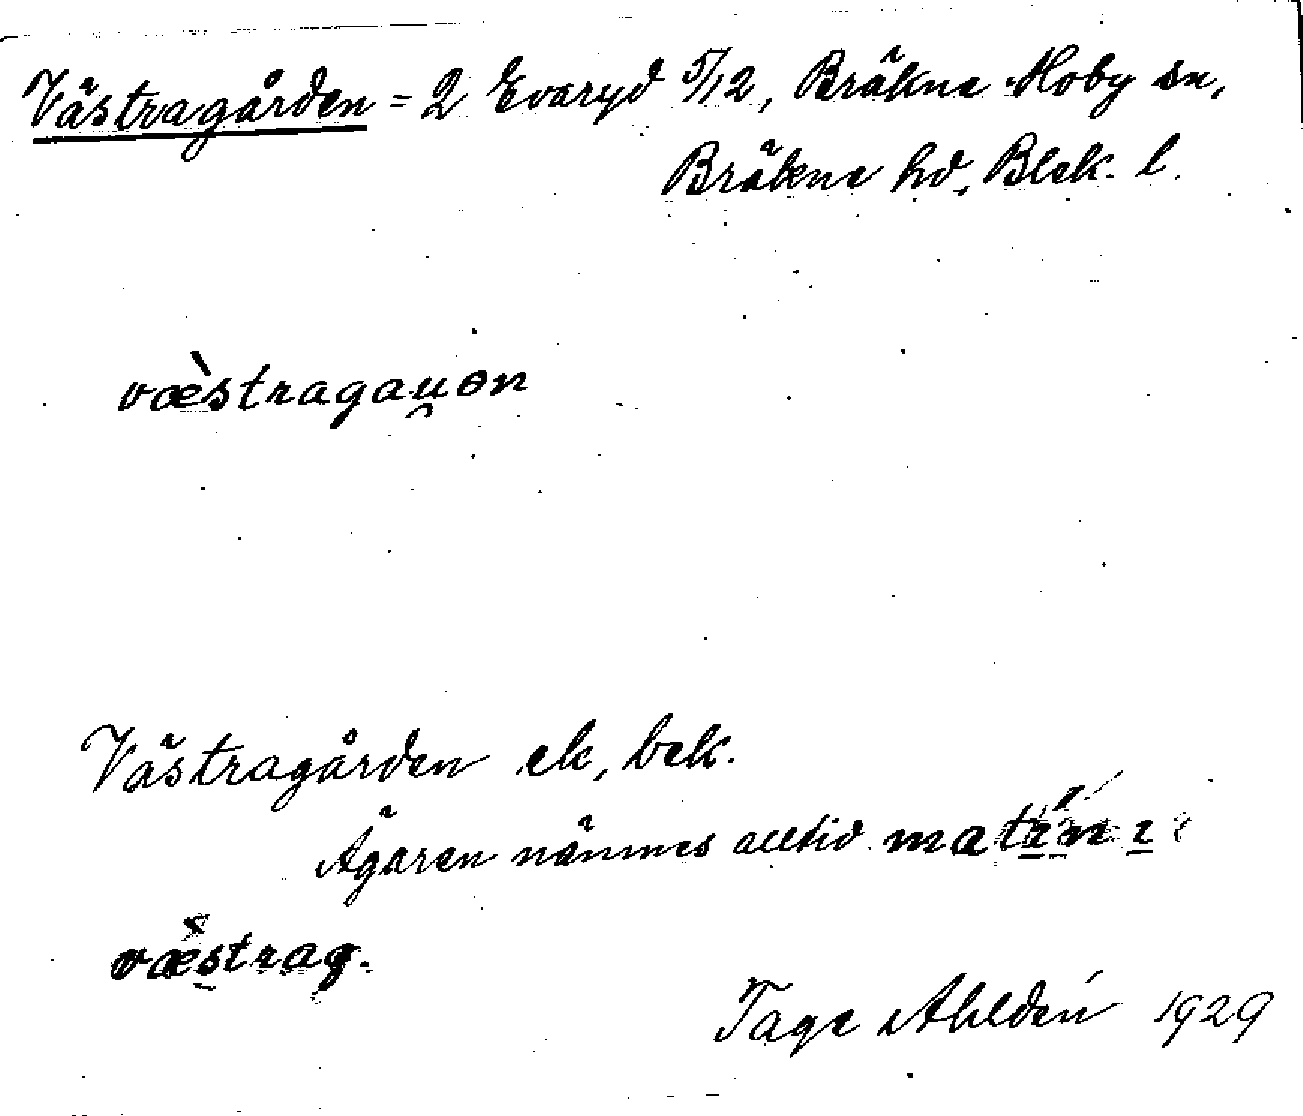 Västragården = 2 Evaryd 5/12, Bräkne Hoby sn,
Bräkne hd, Blek. l.
væ̀stragau̯ən
Västragården ek, bek.
Ägaren nämnes alltid
væstrag.
Tage Ahldén 1929